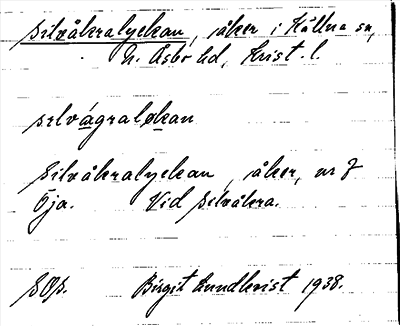 Silvåkralyckan, åker i Källna sn,
N. Åsbo hd, Krist. l.
sɛlvágraløkan
Silvåkralyckan, åker, nr 7
Öja. Vid Silvåkra.
Birgit Lundkvist 1938.